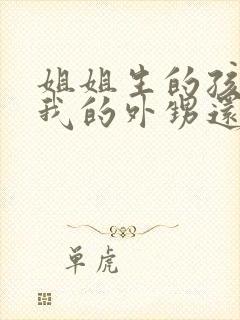 姐姐生的孩
我的外甥還
单虎